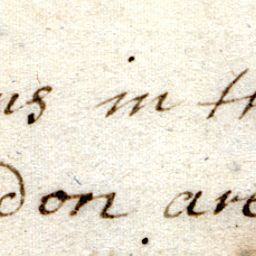 us in th
don are